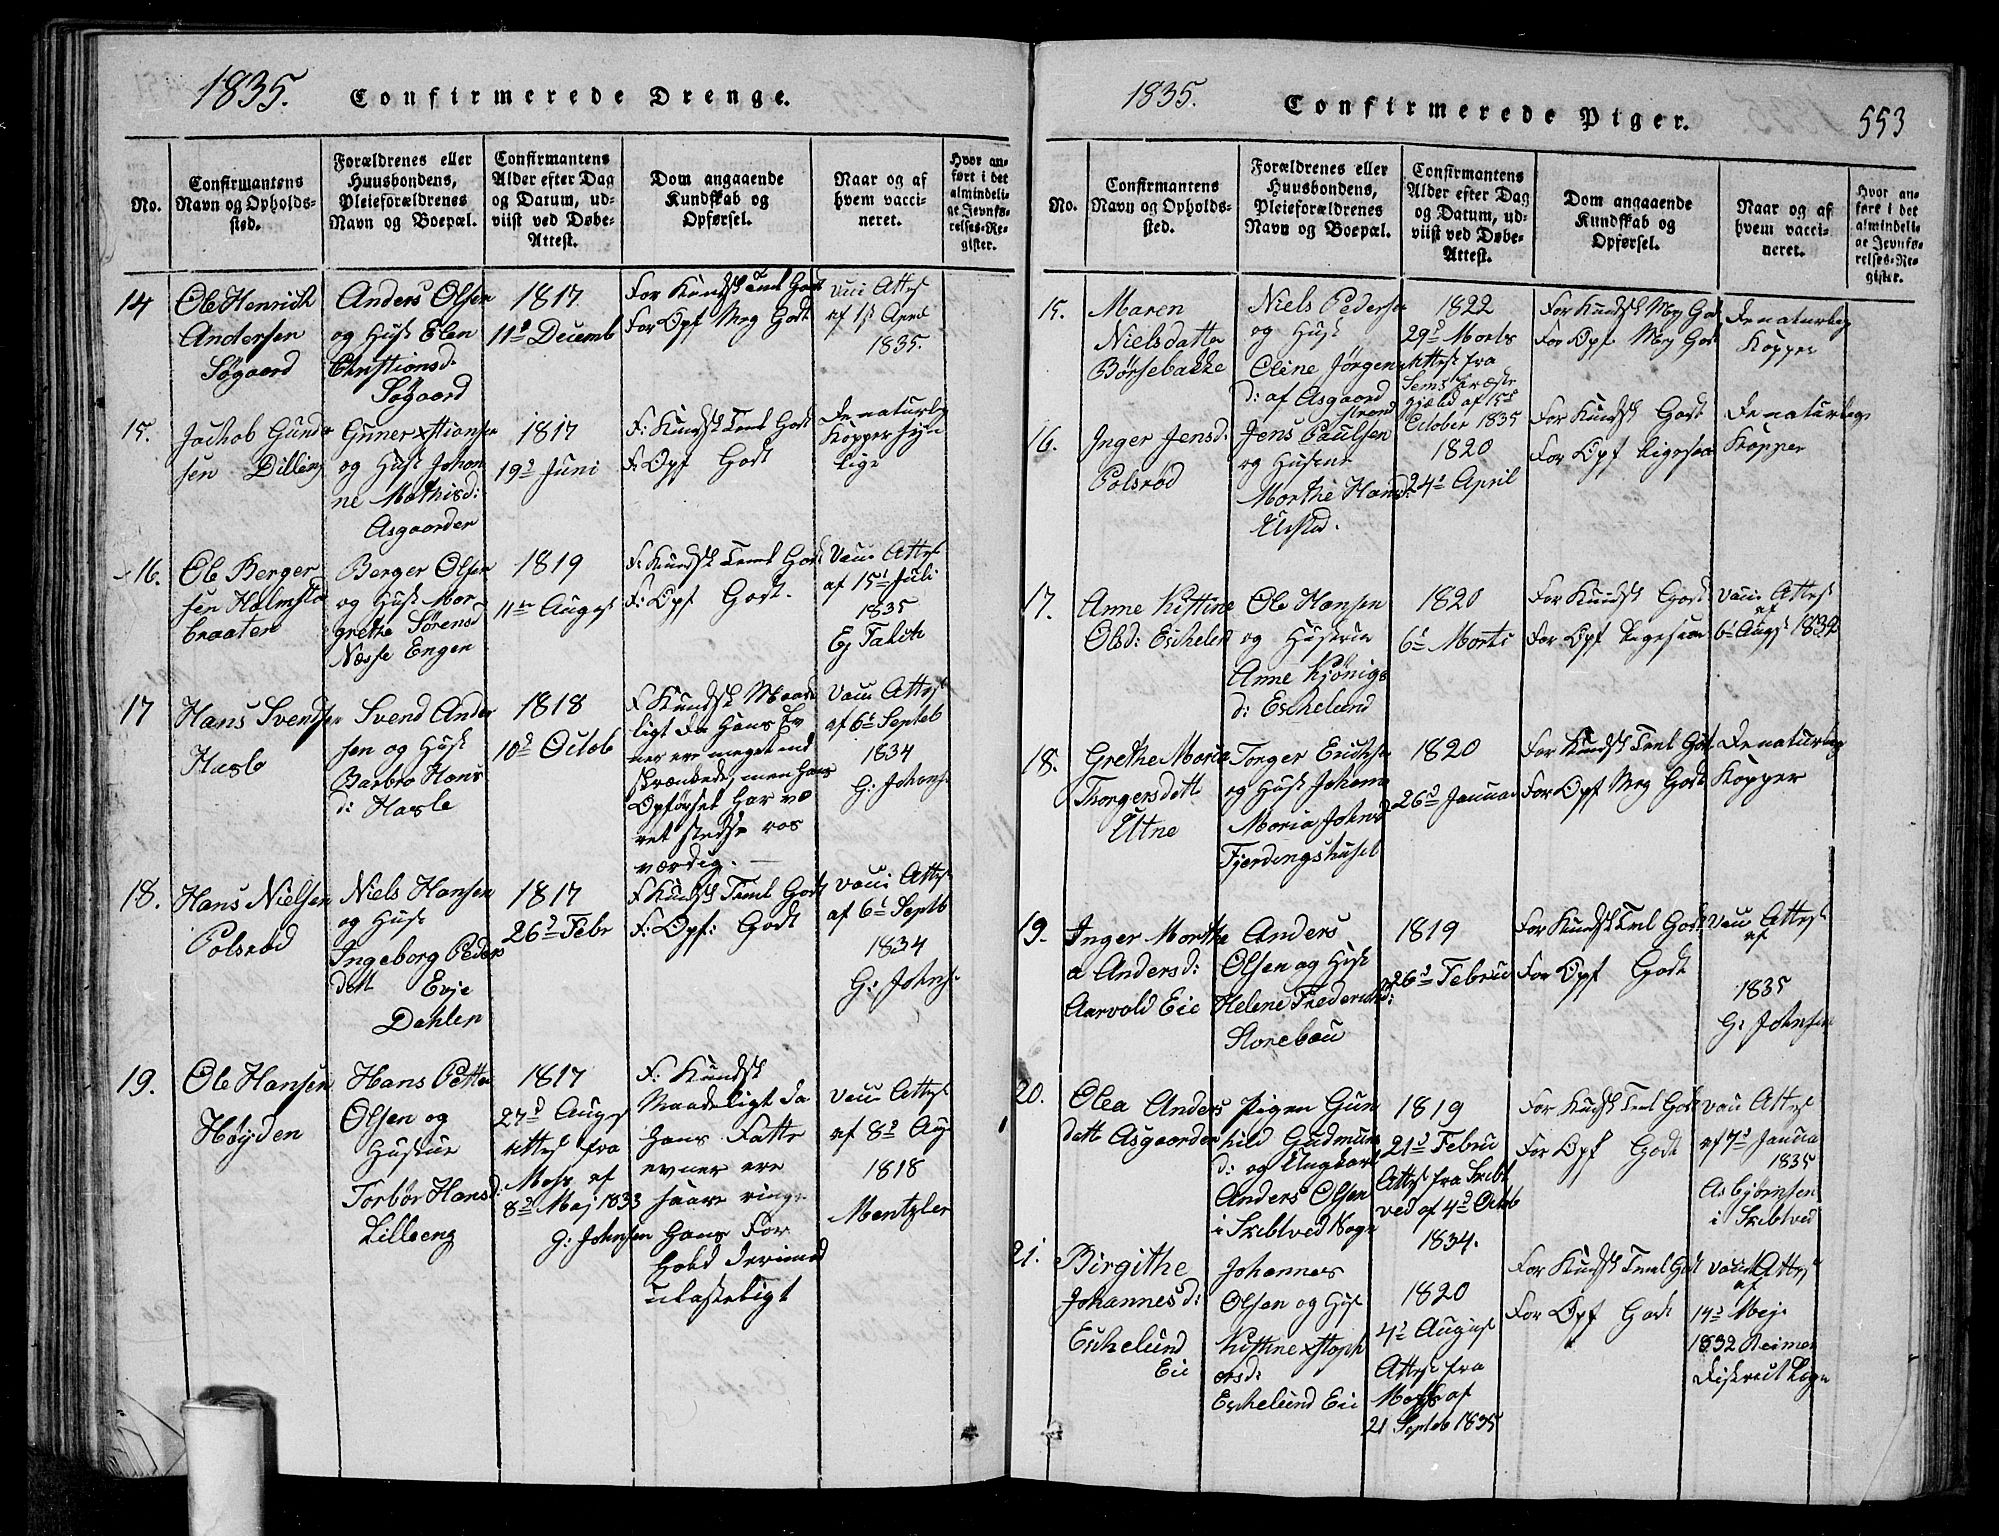 1835. Confirmerede Drenge.
No.
Confirmantens
Navn og Opholds-
sted.
Forældrenes eller
Huusbondens,
Pleieforældrenes
Navn og Boepæl.
Confirmantens
Alder efter Dag
og Datum, ud-
viist ved Døbe-
Attest.
Dom angaaende
Kundskab og
Opførsel.
Naar og af
hvem vacci-
neret.
Hvor an-
ført i det
almindeli-
ge Jevnfø-
relses-Re-
gister.
14
Ole Henrich
Andersen
Søgaard
Anders Olsen
og Hust Elen
Christiansd:
Søgaard
1817
11d Decemb
For Kundsk Teml Godt
For Opf Meg Godt
Vacc Attest
af 1st April
1835.
15.
Jachob Gunder
sen Dilling
Gunner Xstiansen
og Hust Johan
ne Mathisd:
Asgaarden
1817
19d Juni
F: Kundsk Teml Godt
F: Opf Godt
De naturlig
Kopper syn
lige
16.
Ole Berger
sen Halmsta
braaten
Berger Olsen
og Hust Mar
grethe Sørensd
Næsse Engen
1819
11te August
F: Kundsk Teml Godt
F: Opf Godt.
Vacc Attest
af 15d Juli
1835
Ej Falch
17
Hans Svendsen
Haslo
Svend Ander
sen og Hust
Barbro Hans
d: Hasle
1818
10d Octob
F Kundsk Maade
ligt da Hans Ev
ner ere meget ind
skrænkede, men Hans
Opførsel har væ
ret stedse ros
værdig.
Vacc Attest
af 6d Septeb
1834
G: Johnse
18.
Hans Nielsen
Polsrød
Niels Hansen
og Hust
Ingeborg Peders
datt Evje
Dahlen
1817
26d Febr
F Kundsk Teml Godt
F: Opf: Godt
Vacci Attest
af 6d Septb
1834
G: Johns
19.
Ole Hansen
Høyden
Hans Petter
Olsen og
Hustrue
Torbør Hansd:
Lilleeng
1817
27d August
Attest fra
Moss af
8d Maj 1833
G: Johnsen
F: Kundsk
Maadeligt da
Hans Fatte
evner ere
saare ringe
Hans For
hold derimod
ulasteligt
Vacc Attest
af 8d Aug
1818
Mentzler
1835. Confirmerede Piger. 553
No.
Confirmantens
Navn og Opholds-
sted.
Forældrenes eller
Huusbondens,
Pleieforældrenes
Navn og Boepæl.
Confirmantens
Alder efter Dag
og Datum, ud-
viist ved Døbe-
Attest.
Dom angaaende
Kundskab og
Opførsel.
Naar og af
hvem vacci-
neret.
Hvor an-
ført i det
almindeli-
ge Jevnfø-
relses-Re-
gister.
15.
Maren
Nielsdatter
Börsebakke
Niels Pederse
og Hust
Eline Jørgen
d: af Asgaard
strand
1822
29d Marts
Attest fra
Sems Præste
gjæld af 15d
October 1835
For Kundsk Meg Godt
For Opf Meg Godt
De naturlig
Kopper
16.
Inger Jensd:
Polsrød
Jens Paulsen
og Hustrue
Marthe Hansd:
1820
24d April
For Kundsk Godt
For Opf Ligesaa
De naturlige
Kopper
17.
Anne Kistine
Olsd: Eschelun
Ole Hansen
og Hustrue
Anne Kjönigs
d: Eschelund
1820
6d Marts
For Kundsk Godt
For Opf Ligesaa
Vacc Attest
af
6d Augst 1832
18.
Grethe Maria
Thorgersdatt
Utne
Torger Erichse
og Hust Johana
Maria Johnsd
Fjerdingshuset
1820
26d Januar
For Kundsk Teml Godt
For Opf Meg Godt
De naturlig
Kopper
19.
Inger Marthe
a Andersd:
Aarvold Eie
Anders
Olsen og Hust
Helene Frederichsd:
Storebau
1819
26d Februa
For Kundsk Teml Godt
For Opf Godt
Vacc Attest
af
1835
G: Johnsen
20.
Olea Anders
datt Asgaarden
Pigen Gun
hild Gudmuns
d: og Ungkarl
Anders Olsen
i Skibtved Sogn
1819
21d Februa
Attest fra Skibt
ved af 4d Octob
1834.
For Kundsk Teml Godt
For Opf Godt
Vacc Attest
af 7d Janua
1835
Asbjørnsen
i Skibtved
21.
Birgithe
Johannesd:
Eschelund
Eie
Johannes
Olsen og Hust
Kistine Xstoph
ersd:
Eschelund Eie
1820
4d August
Attest fra
Moss af
21 Septeb 1835
For Kundsk Teml Godt
For Opf Godt
Vacc Attest
af
14d Mej
1832 Reimer
Diskrict Læge